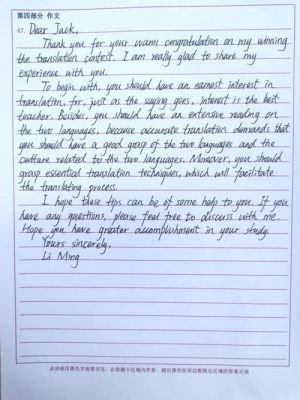 第四部分 作文
47. Dear Jack,
Thank you for your warm congratulation on my winning
the translation contest. I am really glad to share my
experience with you.
To begin with, you should have an earnest interest in
translation, for, just as the saying goes, interest is the best
teacher. Besides, you should have an extensive reading on
the two languages, because accurate translation demands that
you should have a good grasp of the two languages and the
culture related to the two languages. Moreover, you should
grasp essential translation techniques, which will facilitate
the translating process.
I hope these tips can be of some help to you. If you
have any questions, please feel free to discuss with me.
Hope you have greater accomplishment in your study.
Yours sincerely,
Li Ming
必须使用黑色字迹签字笔书写，在答题卡区域内作答，超出黑色矩形边框限定区域的答案无效